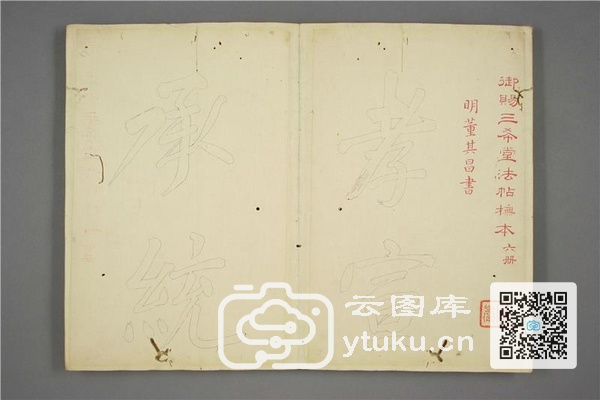 御賜三希堂法帖橅本 六册
明董其昌書
孝官
承統
云图库
ytuku.cn